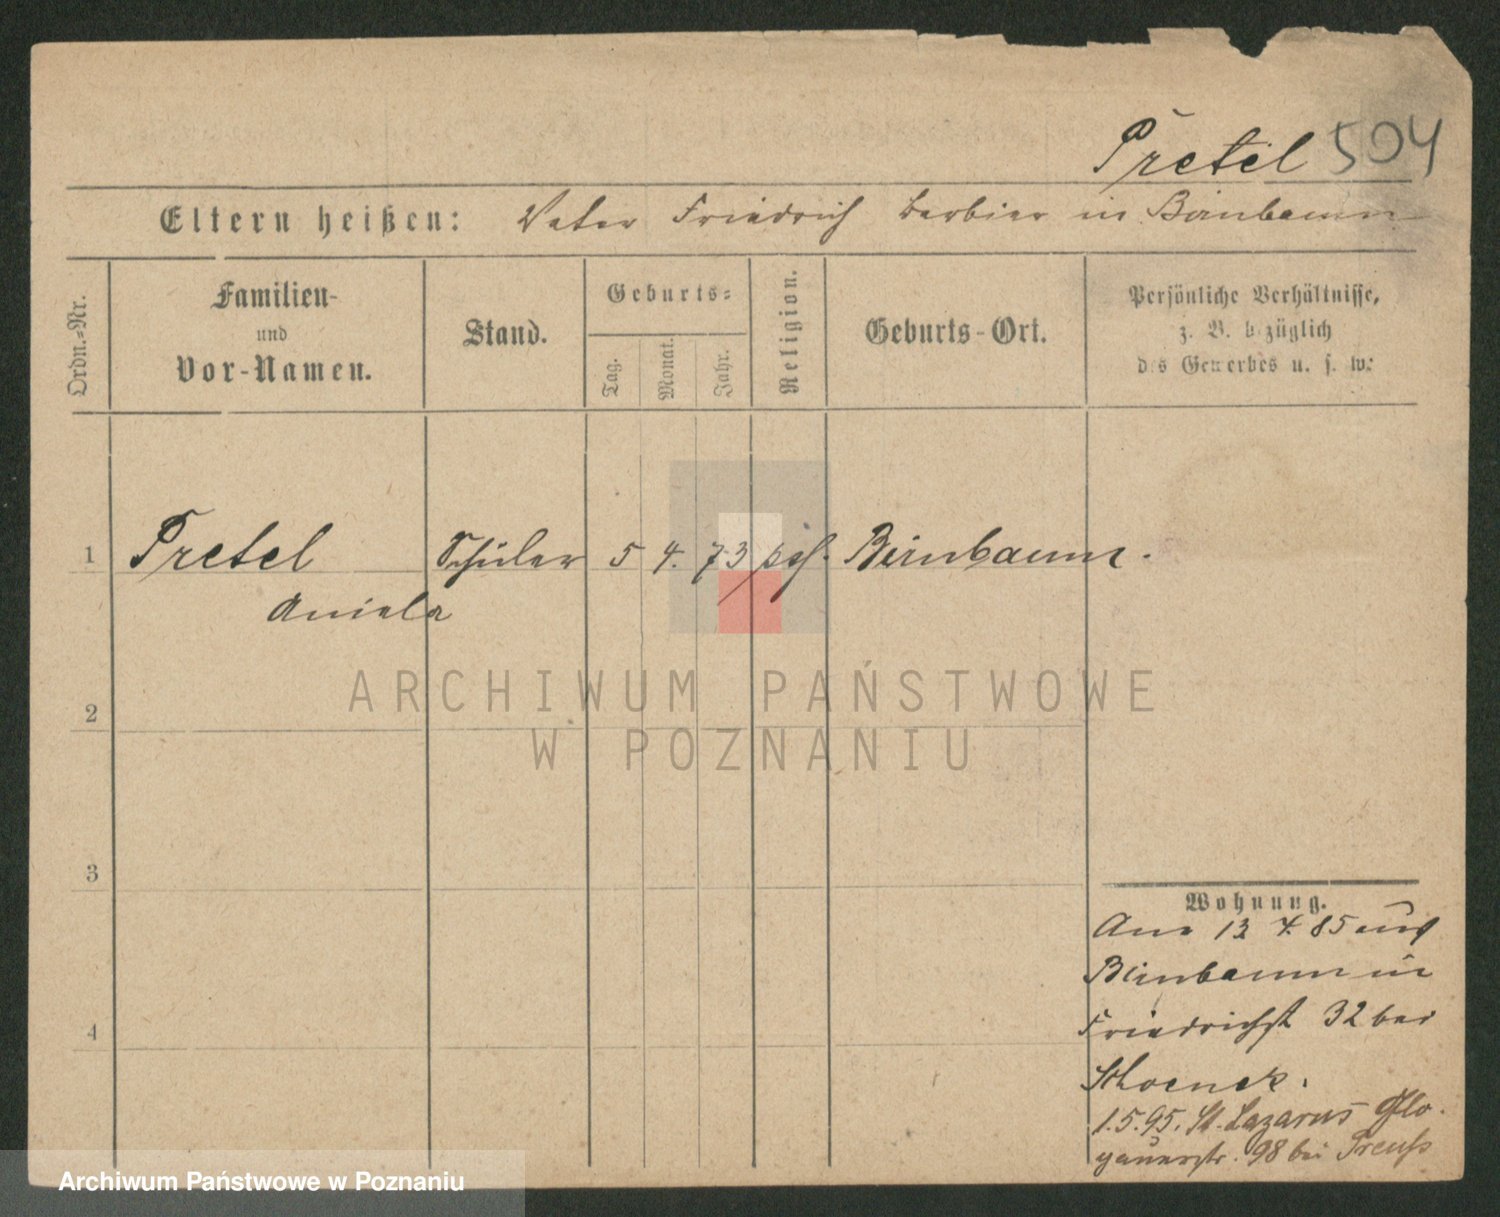 Pretel 504
Eltern heißen: Vater Friedrich Barbier in Birnbaum
Ordn.-Nr.
Familien-
und
Vor-Namen.
Stand.
Geburts-
Tag.
Monat.
Jahr.
Religion.
Geburts-Ort.
Persönliche Verhältnisse,
z. B. bezüglich
des Gewerbes u. s. w.
1 Pretel Schüler 5 4. 73 Birnbaum.
Aniela
ARCHIWUM PAŃSTWOWE
W POZNANIU
2
3
4
Wohnung.
13 4. 85 aus
Birnbaum in
Friedrichst 32 bei
1.5.95. St. Lazarus Glo-
gauerstr. 98 bei Preuß
Archiwum Państwowe w Poznaniu